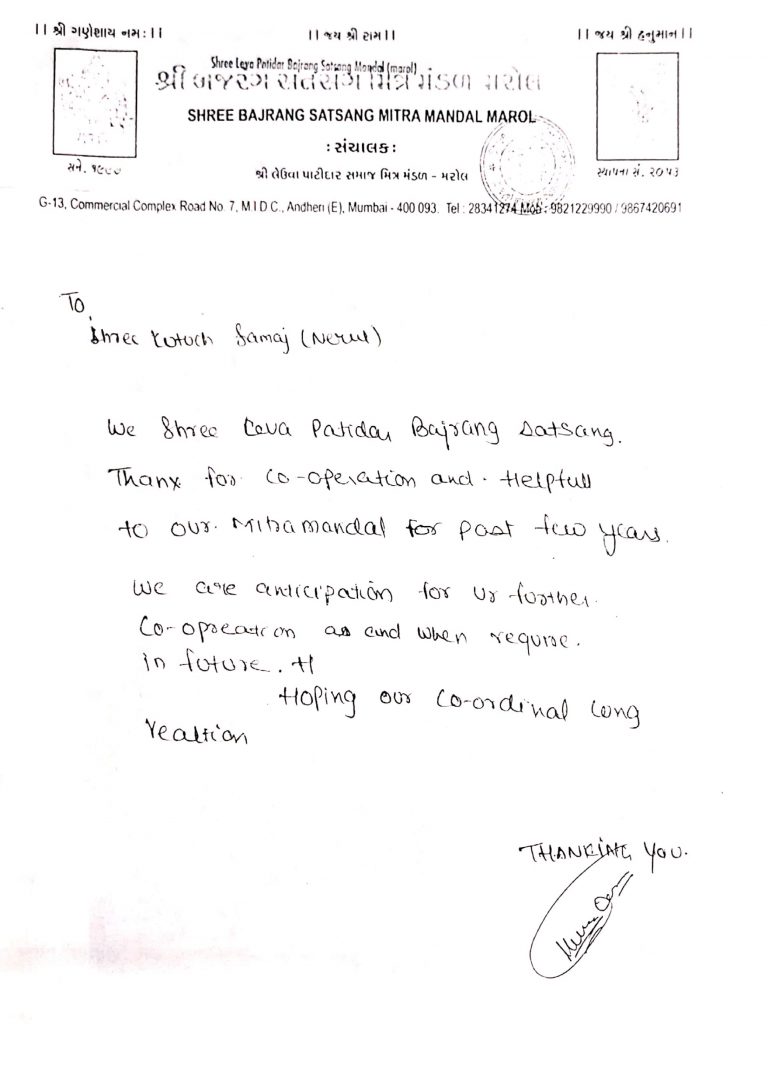 ।। શ્રી ગણેશાય નમઃ ।।
।। જય શ્રી રામ ।।
।। જય શ્રી હનુમાન ।।
Shree Leva Patidar Bajrang Satsang Mandal (marol)
શ્રી બજરંગ સતસંગ મિત્ર મંડળ મરોલ
SHREE BAJRANG SATSANG MITRA MANDAL MAROL
: સંચાલક :
સને. ૧૯૯૭
શ્રી લેઉવા પાટીદાર સમાજ મિત્ર મંડળ - મરોલ
સ્થાપના સં. ૨૦૫૩
G-13, Commercial Complex Road No. 7, M.I.D.C., Andheri (E), Mumbai - 400 093. Tel : 28341274 Mob : 9821229990 / 9867420691
To,
Shree Kutuch Samaj (Nerul)
We Shree Leva Patidar Bajrang Satsang.
Thanx for co-operation and. Helpfull
to our. Mitramandal for past few years.
We are anticipation for ur further.
Co-opreation as and when requrse.
in future. H
Hoping our co-ordinal long
realtion
THANKING YOU.